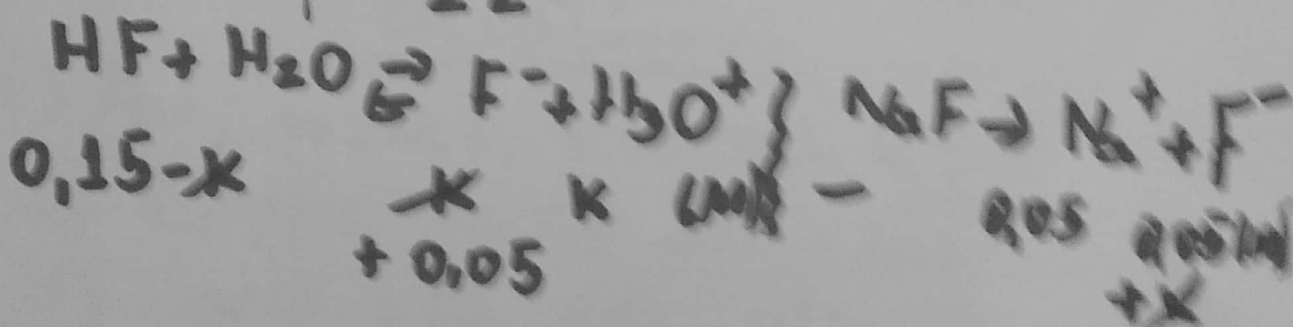 HF + H₂O ⇄ F⁻ + H₃O⁺ } NaF → Na⁺ + F⁻
0,15-x x x (M) - 0,05 0,05 (M)
+ 0,05 + x